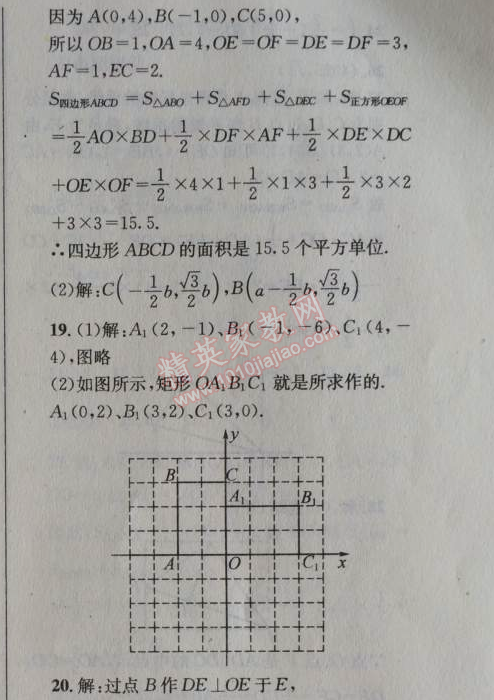 因为 A(0,4),B(-1,0),C(5,0),
所以 OB=1,OA=4,OE=OF=DE=DF=3,
AF=1,EC=2.
S四边形ABCD=S△ABO+S△AFD+S△DEC+S正方形OEOF
=1/2 AO×BD+1/2×DF×AF+1/2×DE×DC
+OE×OF=1/2×4×1+1/2×1×3+1/2×3×2
+3×3=15.5.
∴四边形 ABCD 的面积是 15.5 个平方单位.
(2)解:C(-1/2 b,√3/2 b),B(a-1/2 b,√3/2 b)
19. (1)解:A₁(2,-1)、B₁(-1,-6)、C₁(4,-
4),图略
(2)如图所示,矩形 OA₁B₁C₁ 就是所求作的.
A₁(0,2)、B₁(3,2)、C₁(3,0).
y
B C
A₁ B₁
A O C₁ x
20. 解:过点 B 作 DE⊥OE 于 E,
精英家教网
www.1010jiajiao.com